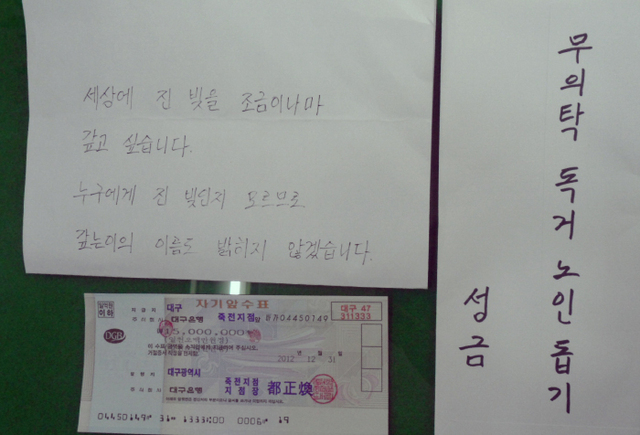 세상에 진 빚을 조금이나마
갚고 싶습니다.
누구에게 진 빚인지 모르므로
갚는이의 이름도 밝히지 않겠습니다.
무의탁 독거노인돕기
성금
자기앞수표
대구
대구은행 죽전지점
04450149
대구 47
311333
15,000,000
2012 12 31
DGB
대구광역시
대구은행 죽전지점
지점장 都正煥
04450149 31 1333:000 0006 19